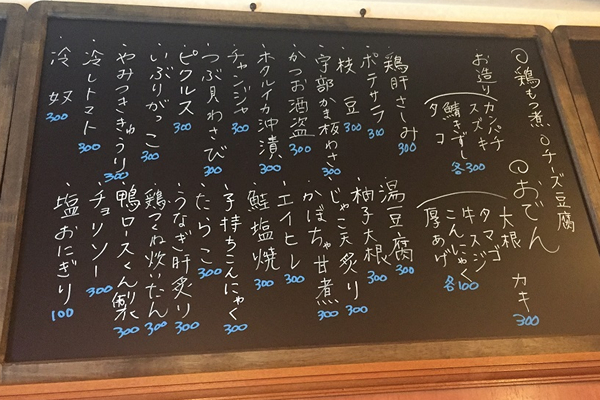 ◎鶏もつ煮 ◎チーズ豆腐
カキ 300
◎おでん
大根
タマゴ
牛スジ
こんにゃく
厚あげ
各100
お造り
カンパチ
スズキ
鯖きずし
タコ
各300
・鶏肝さしみ 300
・ポテサラ 300
・枝豆 300
・宇部かま板わさ 300
・かつお酒盗 300
・ホタルイカ沖漬 300
・チャンジャ 300
・つぶ貝わさび 300
・ピクルス 300
・いぶりがっこ 300
・やみつききゅうり 300
・冷しトマト 300
・冷奴 300
・湯豆腐 300
・柚子大根 300
・じゃこ天炙り 300
・かぼちゃ甘煮 300
・エイヒレ 300
・鮭塩焼 300
・子持ちこんにゃく 300
・たらこ 300
・うなぎ肝炙り 300
・鶏つくね炊いたん 300
・鴨ロースくん製 300
・チョリソー 300
・塩おにぎり 100